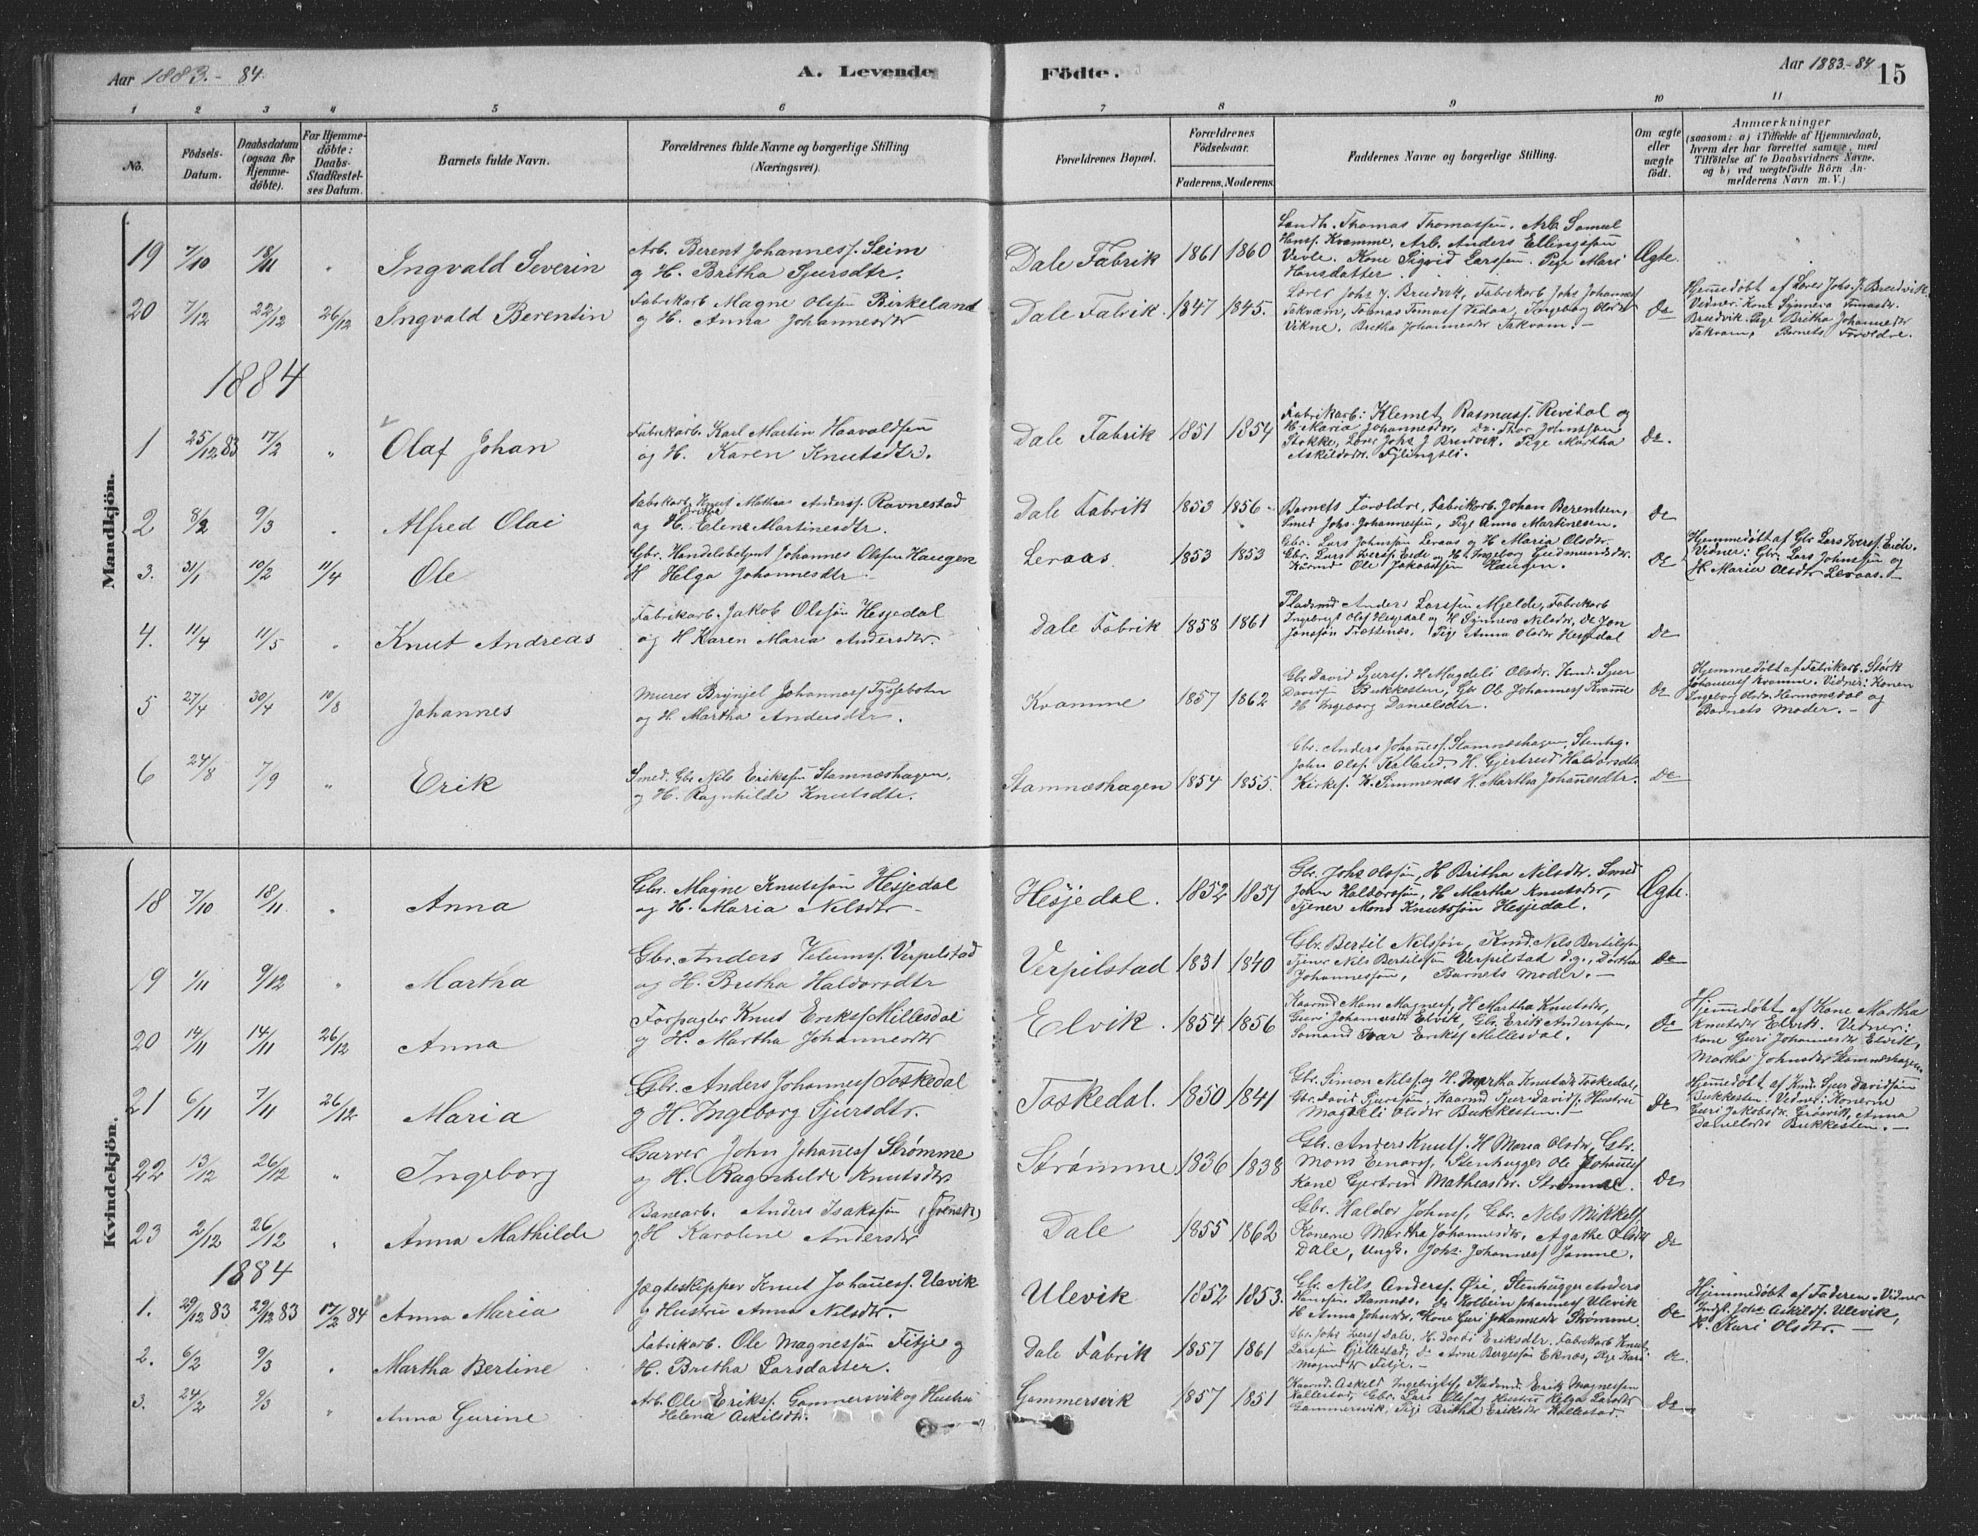 Aar 1883.-84. A. Levende Födte. Aar 1883.-84 15
1 2 3 4 5 6 7 8 9 10 11
No. Födsels-Datum. Daabsdatum (ogsaa for Hjemmedöbte). For Hjemmedöbte: Daabs-Stadfæstelses Datum. Barnets fulde Navn. Forældrenes fulde Navne og borgerlige Stilling (Næringsvei). Forældrenes Bopæl. Forældrenes Födselsaar. Faderens. Moderens. Faddernes Navne og borgerlige Stilling. Om ægte eller uægte födt. Anmærkninger (saasom: a) i Tilfælde af Hjemmedaab, hvem der har forrettet samme, med Tilföielse af to Daabsvidners Navne, og b) ved uægtefödte Börn Anmelderens Navn m. V.)
Mandkjön.
19 7/10 18/11 " Ingvald Severin Arb. Berent Johannesf. Seim
og H. Britha Sjursdtr. Dale Fabrik 1861 1860 Landh. Thomas Thomassen. Arb. Samul
Hansf. Kvamme, Arb. Anders Ellingsen
Kone Sigvid Larssen. Pige Mari
Hansdatter. Ægte.
20 7/12 22/12 26/12 Ingvald Berentin Fabrikarb. Magne Olsen Birkeland
og H. Anna Johannesdtr Dale Fabrik. 1847 1845. Lærer Johs J. Bredvik, Fabrikarb Johs Johannesf
Takvam, Tomas Tomasf Ingebog Olsdtr
Vikne. Britha Johannesdtr Takvam.- Do Hjemmedöbt af Lærer Johs. J. Bredvik.
Vidner: Kone Synneva Tomasdtr.
Bredvik. Pige Britha Johannesdtr
Takvam, Barnets Forældre.
1884
1 25/12 83 17/2 " Olaf Johan Fabrikarb. Karl Martin Haavaldsen
og H. Karen Knutsdtr. Dale Fabrik 1851 1854 Fabrikarb: Klemet Rasmusf. Revidal og
H. Maria Johannesdtr, Do. Thor Johnssøn
Stokke, Lærer Johs J Bredvik. Pige Martha
Askilsdtr. Fylingsli. Do.
2 8/2 9/3 " Alfred Olai Fabrikarb Knut Mathias Andersf. Ravnestad
og H. Britha Elene Martinesdtr. Dale Fabrik 1853 1856 Barnets Forældre, Fabrikarb. Johan Berentsen,
Smed Johs. Johannessen, Pige Anna Martinesen. Do
3. 31/1 10/2 11/4 Ole Gbr. Handelsbetjent Johannes Olsen Haugen
H Helga Johannesdtr. Leraas. 1853 1853 Gbr. Lars Johnsøn Leraas og H Maria Olsdtr.
Gbr. Lars Iversf. Eide og H. Ingebog Gudmundsdtr.
Ole Jakobssøn Haugen. Do Hjemmedöbt af Gbr Lars Iversf. Eide.
Vidner: Gbr. Lars Johnssøn og
H Maria Olsdtr Leraas.-
4. 11/4 11/5 " Knut Andreas Fabrikarb. Jakob Olssøn Hesjedal
og H Karen Maria Andersdtr. Dale Fabrik 1858 1861 Pladsmd Anders Larssen Mjelde, Fabrikarb
Ingebrigt Olsf Hesjedal og H Synneva Nilsdtr, Do Jon
Jonssøn Pige Anna Olsdtr Hesjedal Do
5 27/4 30/4 10/8 Johannes Murer Brynjel Johannesf Fyssebotn
og H. Martha Andersdtr. Kvamme 1857 1862 Gbr David Sjursf. H Magdeli Olsdtr. Kmd. Sjur
Davidsf Bukkesten, Gbr Ole Johannesf Kvamme
H Ingeborg Danielsdtr. Do Hjemmedöbt af Fabrikarb. Størk
Johannesf Kvamme. Vidner: Konen
Ingeborg Olsdtr. Hermonsdal og
Barnets Moder.-
6 24/8 7/9 " Erik Smed. Gbr Nils Eriksen Stamnæshagen,
og H. Ragnhilde Knutsdtr. Stamnæshagen 1854 1855. Gbr. Anders Johanesf. Stamnæshagen, Stenhg.
John Olsf. Kalland. H. Gjertrud Haldorsdtr
H. Martha Johanesdtr. Do
Kvindekjön.
18 7/10 18/11 " Anna Gbr. Magne Knutssøn Hesjedal
og H. Maria Nilsdtr Hesjedal. 1852 1857 Gbr. Johs Olssøn, H Britha Nilsdtr. Smed
John Haldorssøn, H Martha Knutsdtr,
Tjener Mons Knutssøn Hesjedal. Ægte.
19 1/11 9/12 " Martha Gbr. Anders Velumsf. Verpilstad
og H. Britha Haldorsdtr Verpilstad 1831 1840 Gbr. Bertil Nilssøn, Kmd. Nils Bertilsøn
Tjener Nils Bertilsøn Verpilstad d.y.,
Johannessøn, Barnets Moder.- Do
20 14/11 14/11 26/12 Anna Forpagter Knut Eriksf Millesdal
og H. Martha Johannesdtr Elvik. 1854 1856 Kaarmd Mons Magnesf, H Martha Knutsdtr,
Guri Johannesdtr Elvik, Gbr. Erik Anderssøn,
Sømand Ivar Eriksf Millesdal. Do Hjemmedöbt af Kone Martha
Knutsdtr Elvik. Vidner:
Kone Guri Johannesdtr Elvik,
Martha Johnsdtr Stamnæshagen.
21 6/11 7/11 26/12 Maria Gbr. Anders Johannesf Toskedal
og H. Ingeborg Sjursdtr. Toskedal. 1850 1841 Gbr. Simon Nilsf. og H. Martha Knutsdtr Toskedal,
Gbr. David Sjurssøn, Kaarmd Sjur Davidsf. Hustru
Magdeli Olsdtr Bukkesten.- Do Hjemmedöbt af Kmd. Sjur Davidssøn
Bukkesten. Vidner: Konerne
Guri Jakobsdtr. Anna
Danielsdtr Bukkesten.-
22 13/12 26/12 " Ingeborg Garver John Johanesf Strømme
og H. Ragnhilde Knutsdtr Strømme 1836 1838 Gbr. Anders Knutsf. H Maria Olsdtr, Gbr.
Mons Einarsf, Stenhugger Ole Johanesf
Kone Gjertrud Mathiasdtr. Strømme. Do
23 2/12 26/12 " Anna Mathilde Banearb. Anders Isakssøn (Svensk)
og H Karoline Andersdtr Dale 1855 1862 Gbr. Haldor Johnsf, Gbr. Nils Mikkelsf
Konerne Martha Johannesdtr, Agathe Olsdtr
Dale, Ungk. Johs. Johannesf Do
1884
1. 29/12 83 29/12 83 17/2 84 Anna Maria Jægteskipper Knut Johanesf. Ulevik
og Hustru Anna Nilsdtr. Ulevik 1852 1853. Gbr. Nils Andersf. Øie, Stenhugger Anders
Hansen Stamnæs, Do Kolbein Johannesf Ulevik
H Anna Johnsdtr. Kone Guri Johannesdtr Strømme. Do Hjemmedöbt af Faderen. Vidner
Indst. Johs Askildsf Ulevik,
H. Kari Olsdtr.-
2. 6/2 9/3 " Martha Bertine Fabrikarb. Ole Magnessøn Fitje og
H. Britha Larsdatter. Dale Fabrik 1857 1861 Gbr. Johs Iversf Dale. H. Dorthi Eriksdtr. Fabrikarb Knut
Larssøn Gjellestad, Do Arne Bergessøn Eknæs, Pige Kari
Magnesdtr Fitje.- Do.
3. 24/2 9/3 " Anna Gurine Arb. Ole Eriksf. Gammersvik og Hustru
Helena Askildsdtr. Gammersvik 1857 1851 Kaarmd Askeld Ingebrigtsf, Pladsmd. Erik Magnessøn
Kallestad, Gbr. Lars Olsf og Hustru Helga Larsdtr
Gammersvik, Pige Britha Eriksdtr Kallestad. Do